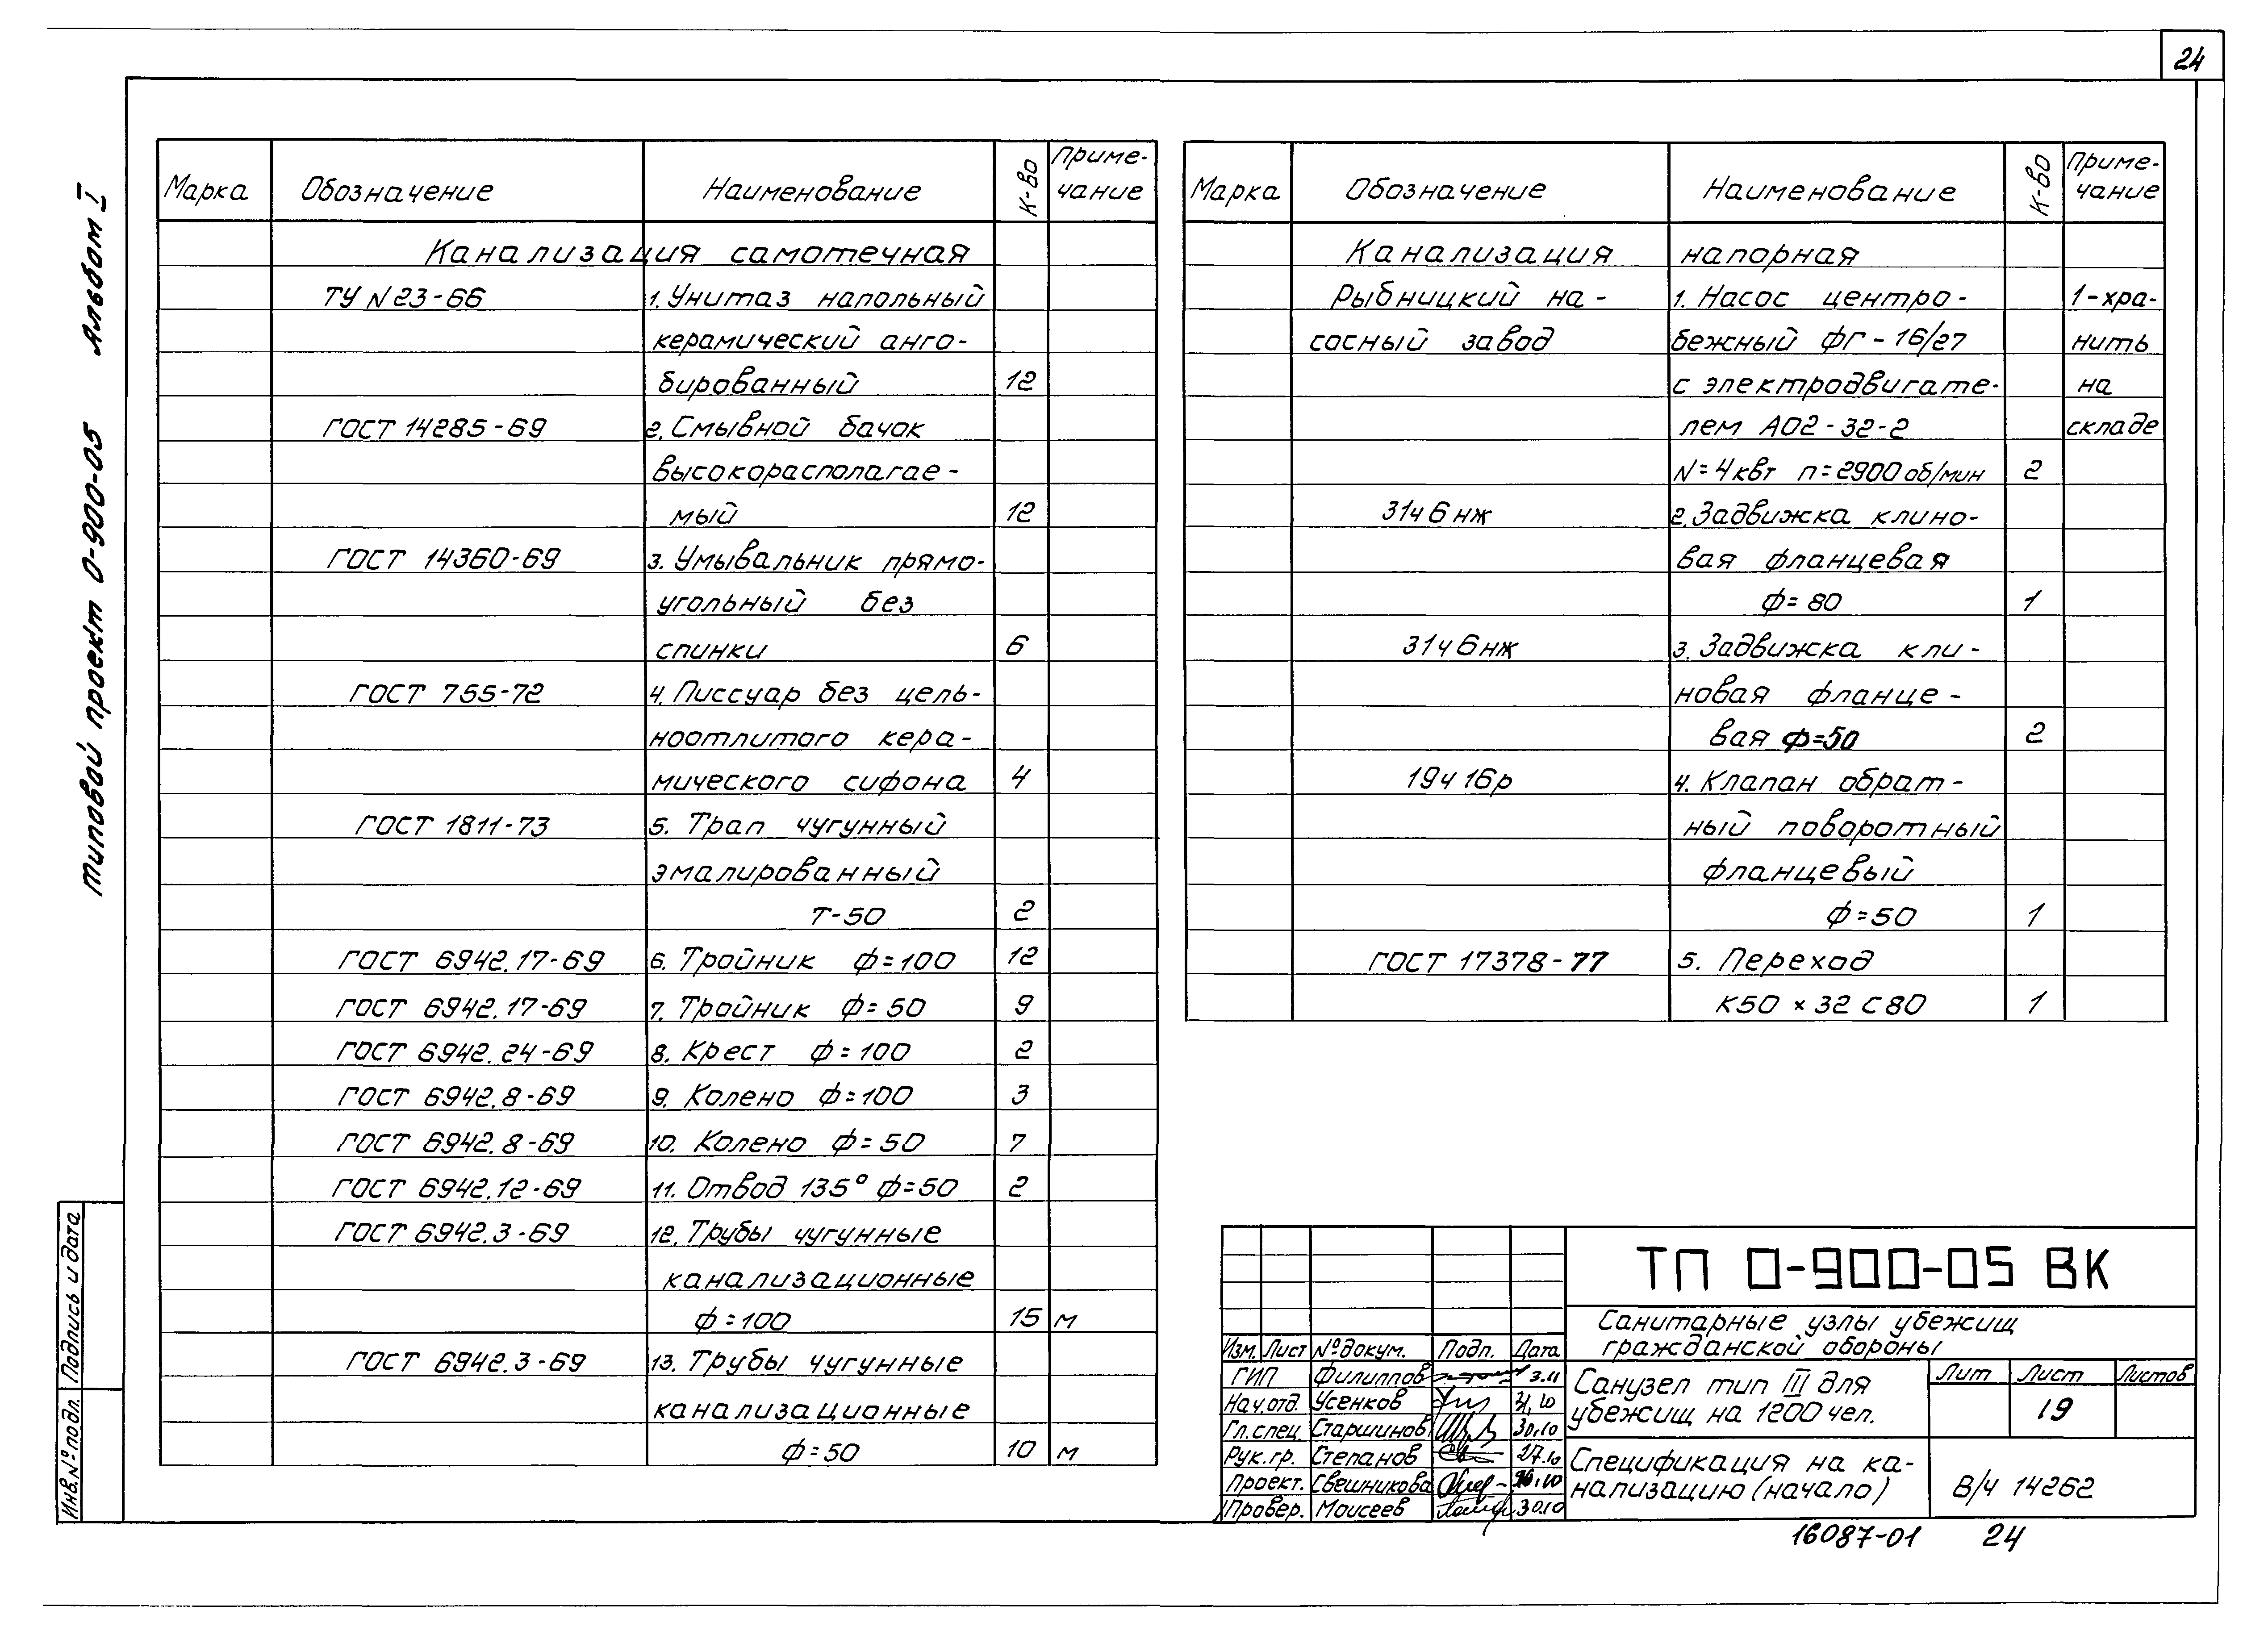 24
типовой проект 0-900-05 Альбом I
Марка Обозначение Наименование К-во Приме-
чание
Канализация самотечная
ТУ N 23-66 1. Унитаз напольный
керамический анго-
бированный 12
ГОСТ 14285-69 2. Смывной бачок
высокорасполагае-
мый 12
ГОСТ 14360-69 3. Умывальник прямо-
угольный без
спинки 6
ГОСТ 755-72 4. Писсуар без цель-
ноотлитого кера-
мического сифона 4
ГОСТ 1811-73 5. Трап чугунный
эмалированный
Т-50 2
ГОСТ 6942.17-69 6. Тройник ф=100 12
ГОСТ 6942.17-69 7. Тройник ф=50 9
ГОСТ 6942.24-69 8. Крест ф=100 2
ГОСТ 6942.8-69 9. Колено ф=100 3
ГОСТ 6942.8-69 10. Колено ф=50 7
ГОСТ 6942.12-69 11. Отвод 135° ф=50 2
ГОСТ 6942.3-69 12. Трубы чугунные
канализационные
ф=100 15 м
ГОСТ 6942.3-69 13. Трубы чугунные
канализационные
ф=50 10 м
Марка Обозначение Наименование К-во Приме-
чание
Канализация напорная
Рыбницкий на- 1. Насос центро- 1-хра-
сосный завод бежный ФГ-16/27 нить
с электродвигате- на
лем АО2-32-2 складе
N=4квт п=2900 об/мин 2
31ч6нж 2. Задвижка клино-
вая фланцевая
ф=80 1
31ч6нж 3. Задвижка кли-
новая фланце-
вая ф=50 2
19ч16р 4. Клапан обрат-
ный поворотный
фланцевый
ф=50 1
ГОСТ 17378-77 5. Переход
К50×32 С80 1
ТП 0-900-05 ВК
Санитарные узлы убежищ
гражданской обороны
Изм. Лист №докум. Подп. Дата
ГИП Филиппов 3.11
Нач.отд. Усенков 31.10
Гл.спец. Старшинов 30.10
Рук.гр. Степанов 27.10
Проект. Свешникова 26.10
Провер. Моисеев 30.10
Санузел тип III для
убежищ на 1200 чел.
Лит Лист Листов
19
Спецификация на ка-
нализацию (начало)
В/ч 14262
16087-01 24
Инв.№подл. Подпись и дата